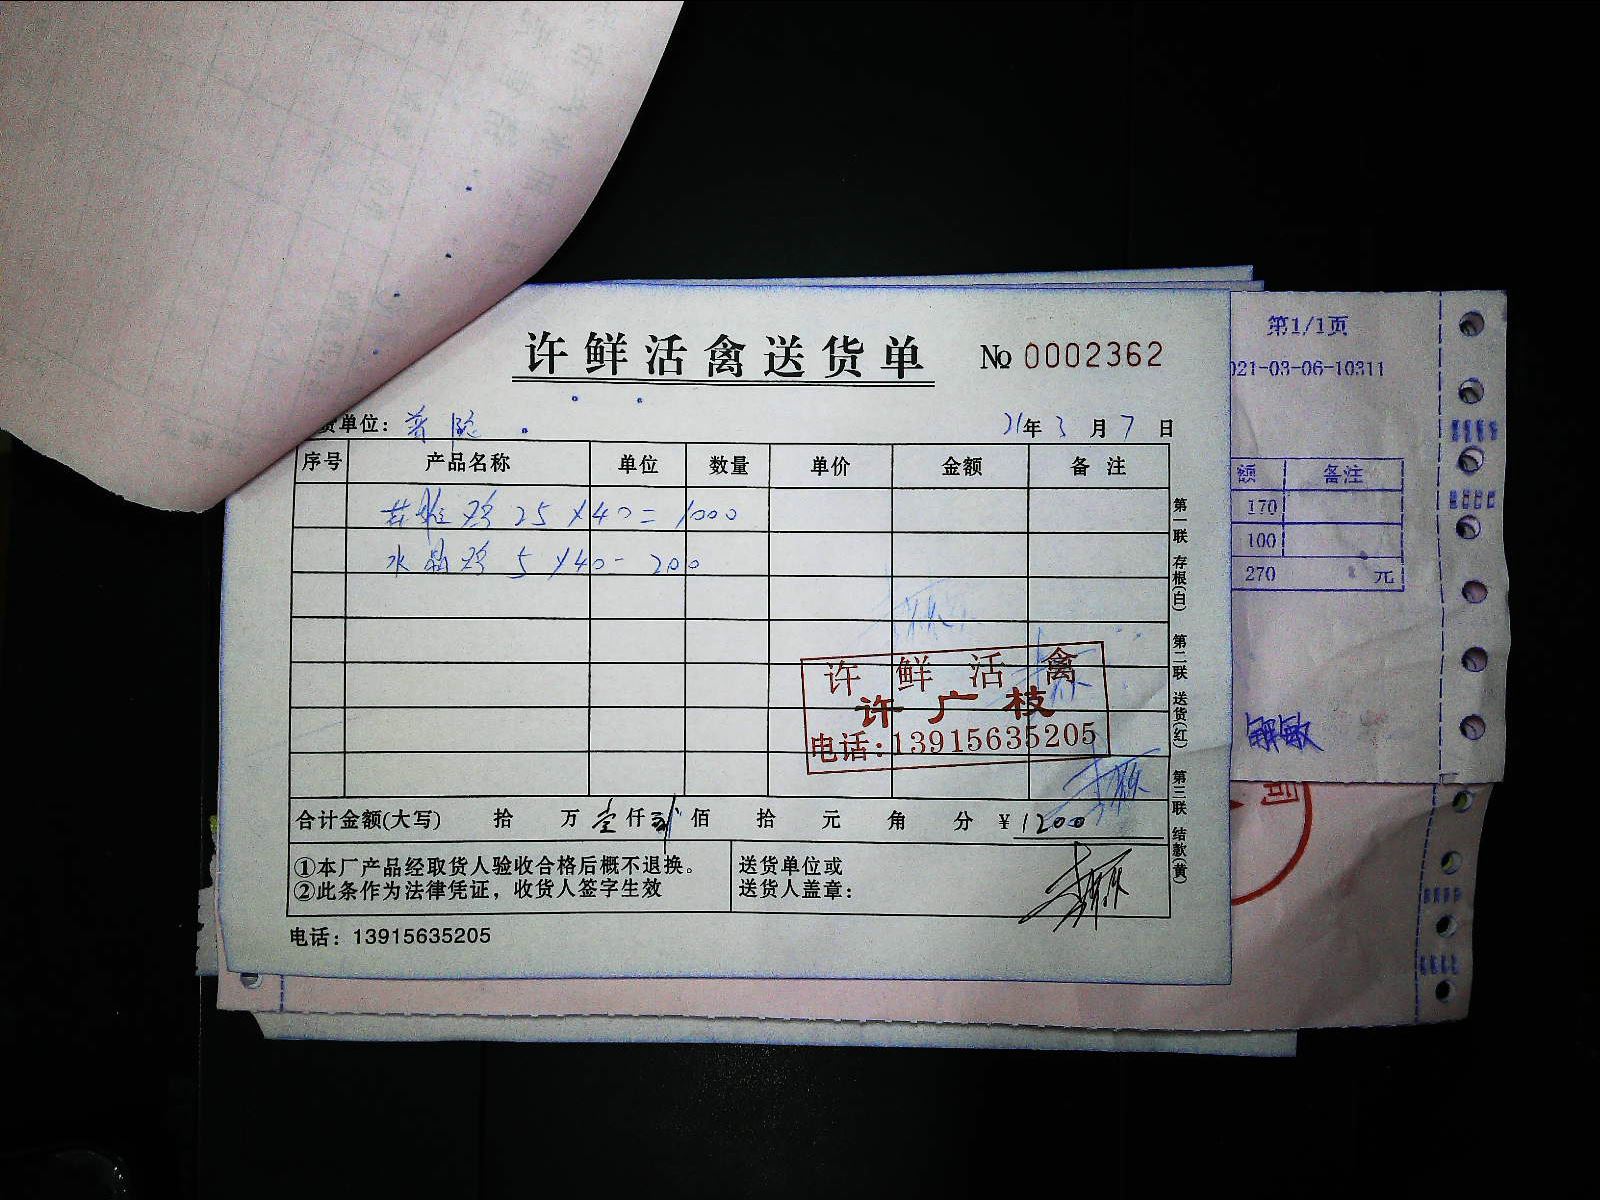 许鲜活禽送货单 № 0002362
货单位：普隆
21年3月7日
序号 产品名称 单位 数量 单价 金额 备注
鸡 25×40=1000
水晶鸡 5×40-200
许鲜活禽
许广枝
电话:13915635205
合计金额(大写) 拾 万 壹仟 贰佰 拾 元 角 分 ¥1200
①本厂产品经取货人验收合格后概不退换。
②此条作为法律凭证，收货人签字生效
送货单位或
送货人盖章：
电话：13915635205
第一联 存根(白) 第二联 送货(红) 第三联 结款(黄)
第1/1页
021-03-06-10311
额 备注
170
100
270 元
司